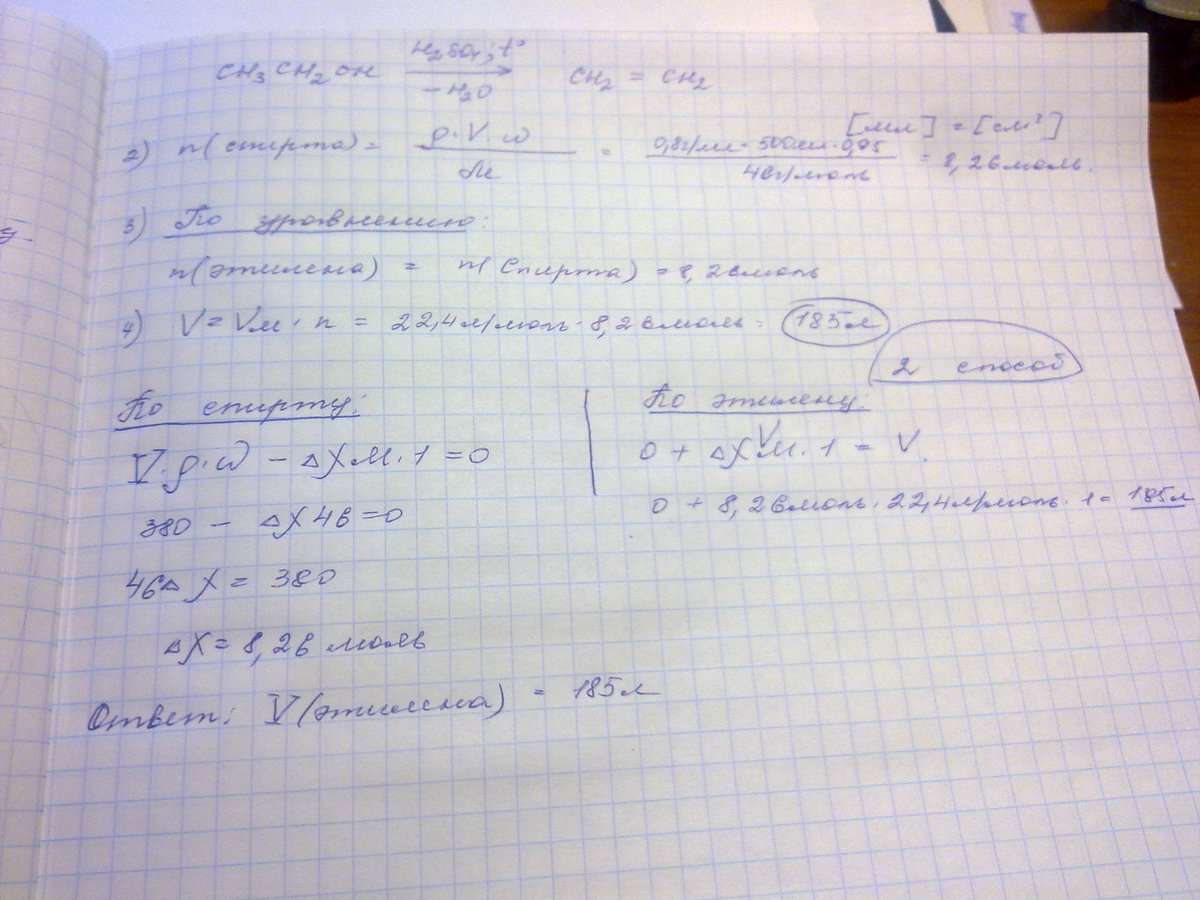 CH₃CH₂OH H₂SO₄; t° → −H₂O CH₂ = CH₂
[мл] = [см³]
2) n(спирта) = ρ·V·ω / M = 0,8г/мл · 500мл · 0,95 / 46г/моль = 8,26моль.
3) По уравнению:
n(этилена) = n(спирта) = 8,26моль
4) V = Vм · n = 22,4л/моль · 8,26моль = 185л
2 способ
По спирту:
V·ρ·ω − ΔXM·1 = 0
380 − ΔX46 = 0
46ΔX = 380
ΔX = 8,26 моль
По этилену:
0 + ΔXVм·1 = V.
0 + 8,26моль · 22,4л/моль · 1 = 185л
Ответ: V(этилена) = 185л